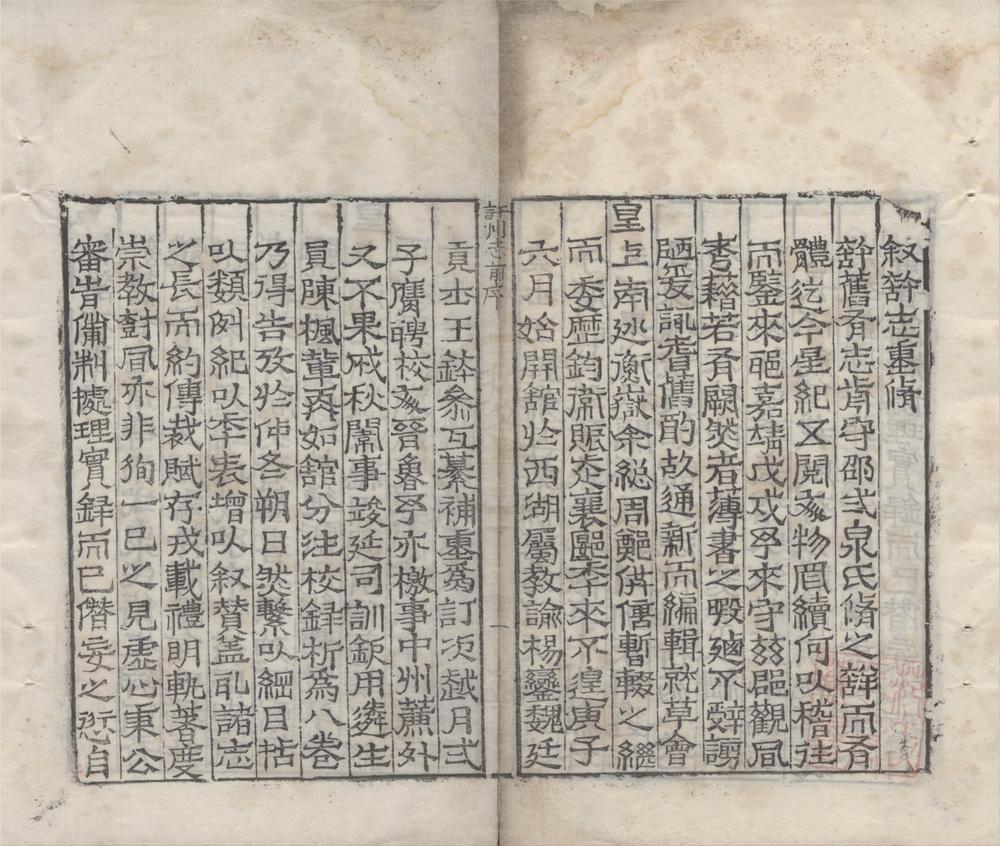 叙許志重脩
許舊有志肯守邵弍泉氏脩之詳而有
體迄今星紀又閱矣物罔續何以稽往
而鑒來耶嘉靖戊戌予來守茲郡觀風
考藉若有闕然者薄書之暇廼不辭謭
陋爰諏耆舊酌故通新而編輯就草會
皇上南巡衡嶽余総周郵供偫暫輟之繼
而委歷鈞衛賑走襄郾季來不遑庚子
六月始開舘於西湖屬教諭楊鑾魏廷
貢杜王鉢叅互纂補重爲訂次越月弍
子膺聘校文晉魯予亦檄事中州蔗外
又不果成秋闈事竣延司訓欽用遴生
員陳楓輩再如舘分注校録析為八卷
乃得告攷於仲冬朔日然繫以綱目括
以類例紀以年表增以叙贊盖乿諸志
之長而約傳裁賦存戎載禮明軌著度
崇教尌風亦非狥一巳之見虛心秉公
審旹備制㨿理實録而巳僭妄之愆自
許州志前序
一